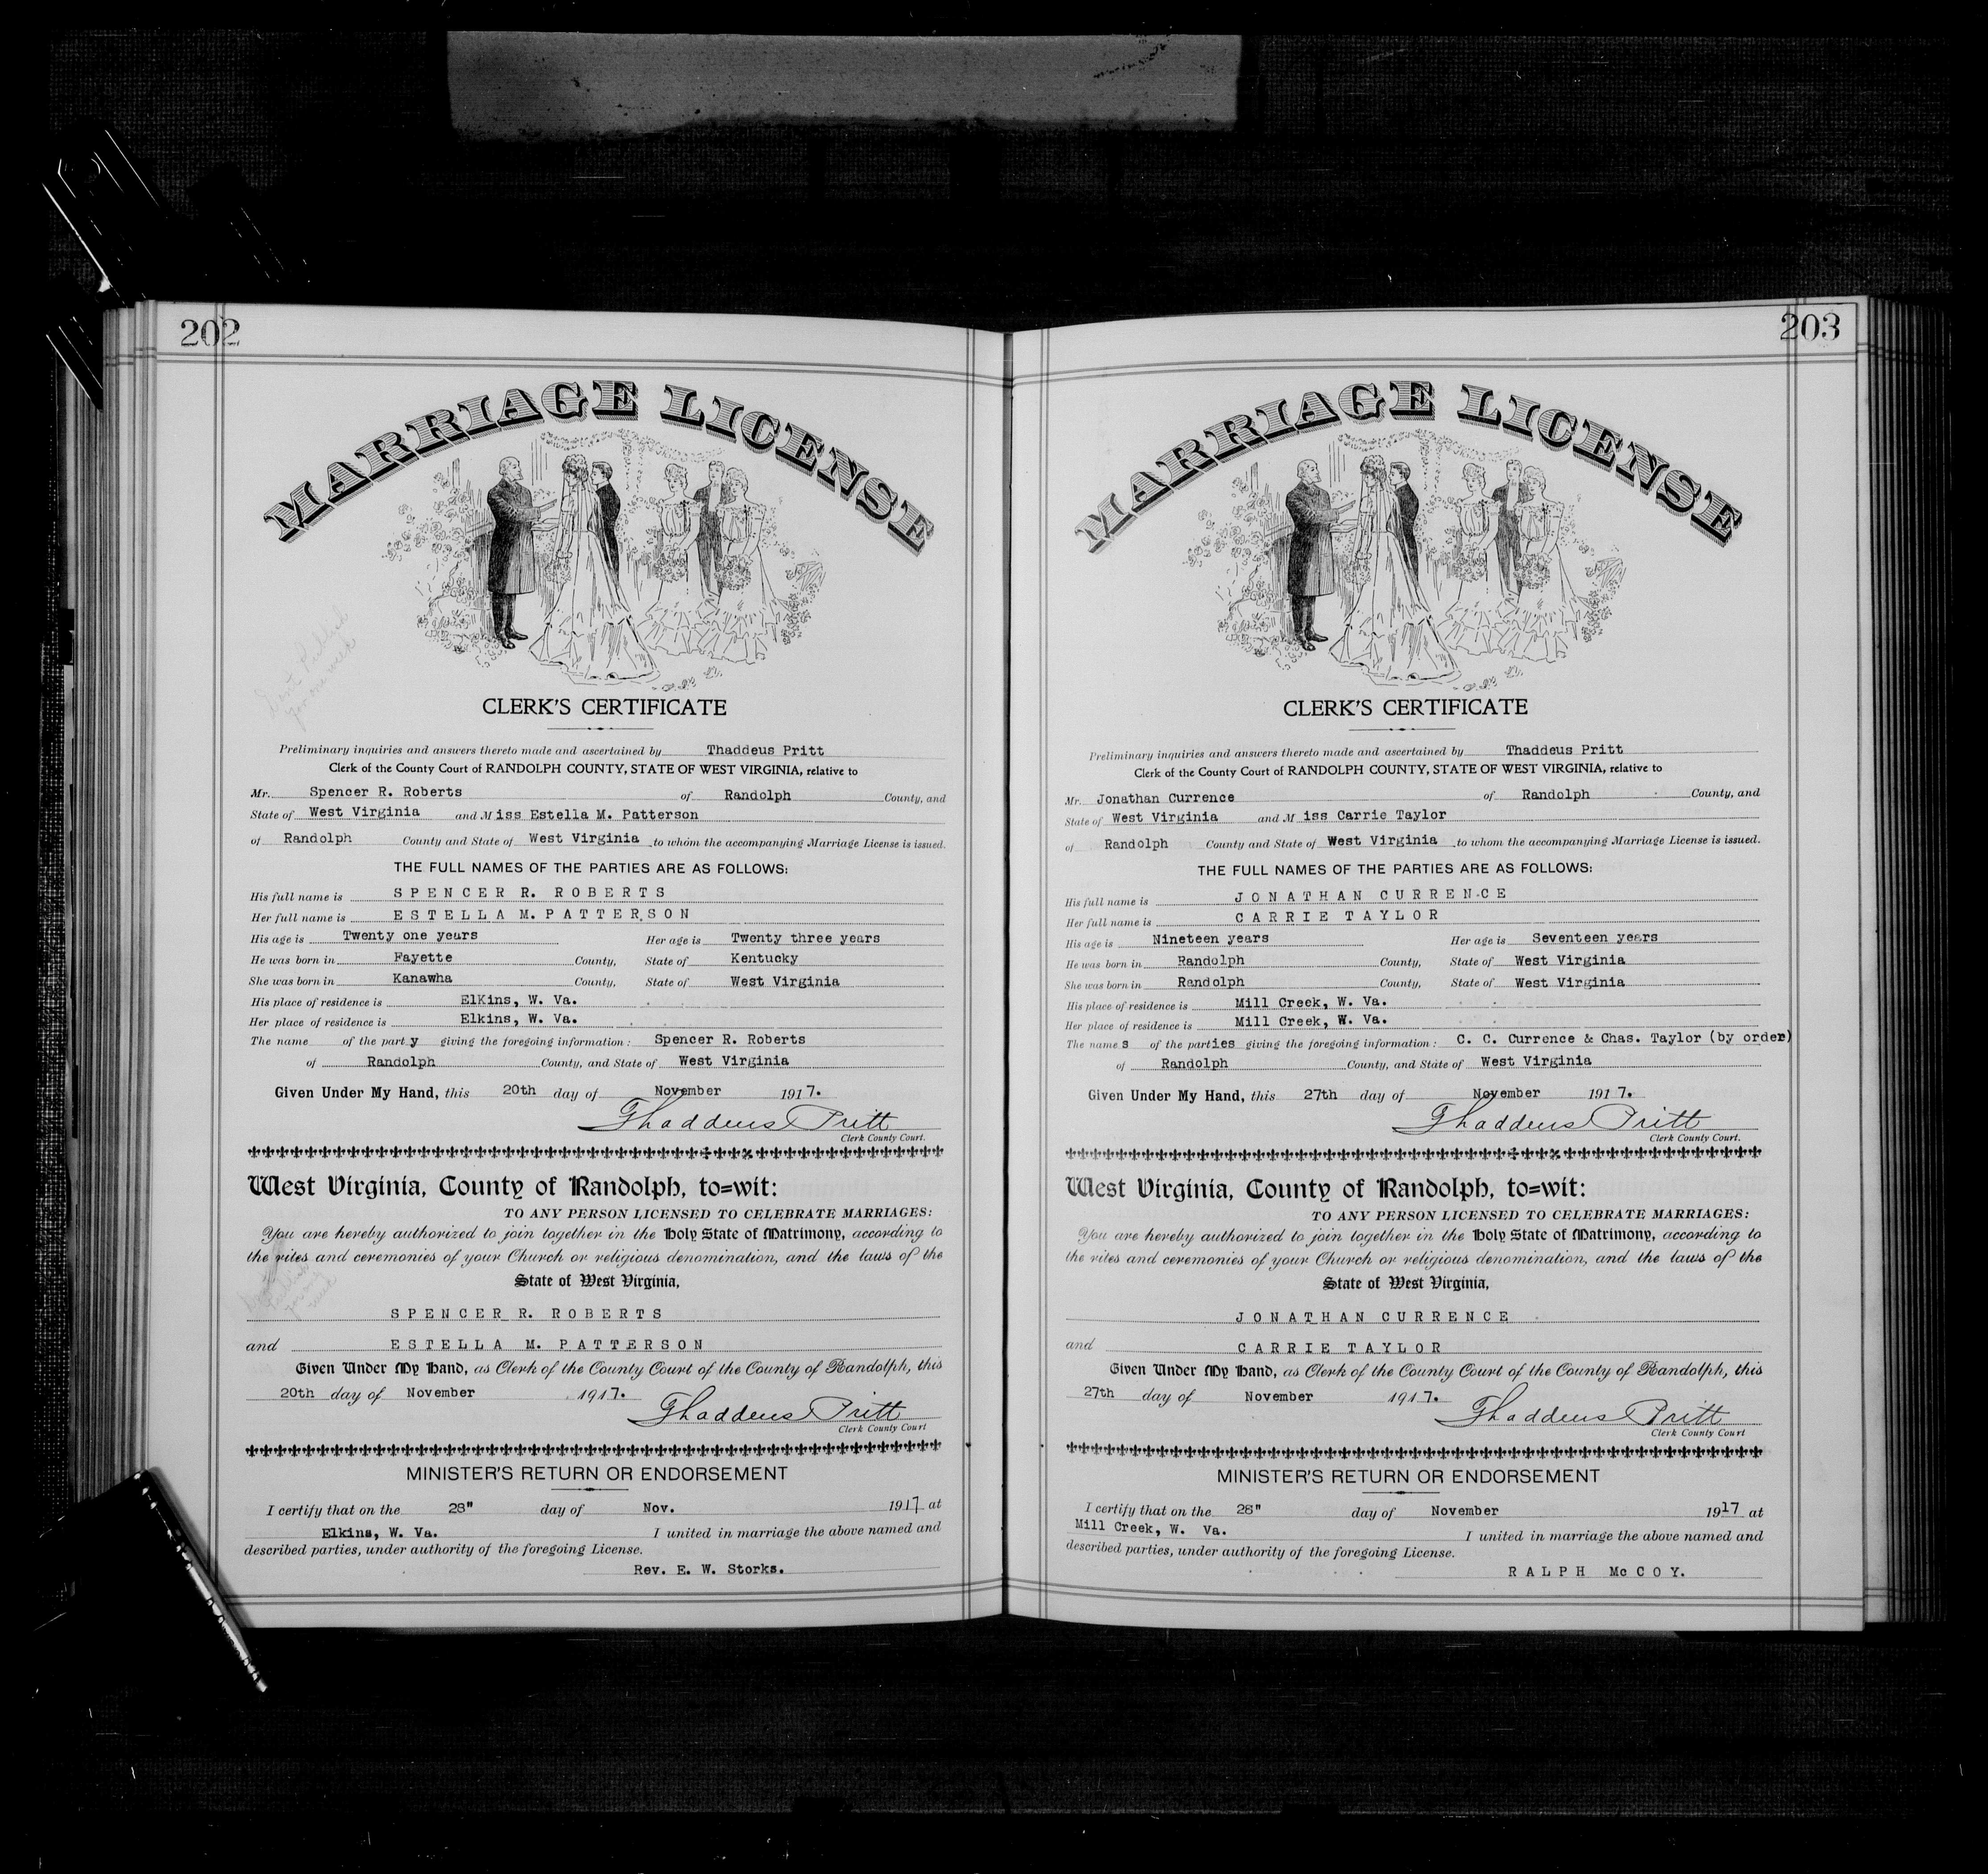 202
MARRIAGE LICENSE
Dont Publish
for one week
CLERK'S CERTIFICATE
Preliminary inquiries and answers thereto made and ascertained by Thaddeus Pritt
Clerk of the County Court of RANDOLPH COUNTY, STATE OF WEST VIRGINIA, relative to
Mr. Spencer R. Roberts of Randolph County, and
State of West Virginia and Miss Estella M. Patterson
of Randolph County and State of West Virginia to whom the accompanying Marriage License is issued.
THE FULL NAMES OF THE PARTIES ARE AS FOLLOWS:
His full name is SPENCER R. ROBERTS
Her full name is ESTELLA M. PATTERSON
His age is Twenty one years Her age is Twenty three years
He was born in Fayette County, State of Kentucky
She was born in Kanawha County, State of West Virginia
His place of residence is Elkins, W. Va.
Her place of residence is Elkins, W. Va.
The name of the party giving the foregoing information: Spencer R. Roberts
of Randolph County, and State of West Virginia
Given Under My Hand, this 20th day of November 1917.
Thaddeus Pritt
Clerk County Court.
West Virginia, County of Randolph, to=wit:
TO ANY PERSON LICENSED TO CELEBRATE MARRIAGES:
You are hereby authorized to join together in the Holy State of Matrimony, according to
the rites and ceremonies of your Church or religious denomination, and the laws of the
State of West Virginia,
SPENCER R. ROBERTS
and ESTELLA M. PATTERSON
Given Under My Hand, as Clerk of the County Court of the County of Randolph, this
20th day of November 1917.
Thaddeus Pritt
Clerk County Court
MINISTER'S RETURN OR ENDORSEMENT
I certify that on the 28" day of Nov. 1917 at
Elkins, W. Va. I united in marriage the above named and
described parties, under authority of the foregoing License.
Rev. E. W. Storks.
203
MARRIAGE LICENSE
CLERK'S CERTIFICATE
Preliminary inquiries and answers thereto made and ascertained by Thaddeus Pritt
Clerk of the County Court of RANDOLPH COUNTY, STATE OF WEST VIRGINIA, relative to
Mr. Jonathan Currence of Randolph County, and
State of West Virginia and Miss Carrie Taylor
of Randolph County and State of West Virginia to whom the accompanying Marriage License is issued.
THE FULL NAMES OF THE PARTIES ARE AS FOLLOWS:
His full name is JONATHAN CURRENCE
Her full name is CARRIE TAYLOR
His age is Nineteen years Her age is Seventeen years
He was born in Randolph County, State of West Virginia
She was born in Randolph County, State of West Virginia
His place of residence is Mill Creek, W. Va.
Her place of residence is Mill Creek, W. Va.
The names of the parties giving the foregoing information: C. C. Currence & Chas. Taylor (by order)
of Randolph County, and State of West Virginia
Given Under My Hand, this 27th day of November 1917.
Thaddeus Pritt
Clerk County Court.
West Virginia, County of Randolph, to=wit:
TO ANY PERSON LICENSED TO CELEBRATE MARRIAGES:
You are hereby authorized to join together in the Holy State of Matrimony, according to
the rites and ceremonies of your Church or religious denomination, and the laws of the
State of West Virginia,
JONATHAN CURRENCE
and CARRIE TAYLOR
Given Under My Hand, as Clerk of the County Court of the County of Randolph, this
27th day of November 1917.
Thaddeus Pritt
Clerk County Court
MINISTER'S RETURN OR ENDORSEMENT
I certify that on the 28" day of November 1917 at
Mill Creek, W. Va. I united in marriage the above named and
described parties, under authority of the foregoing License.
RALPH McCOY.